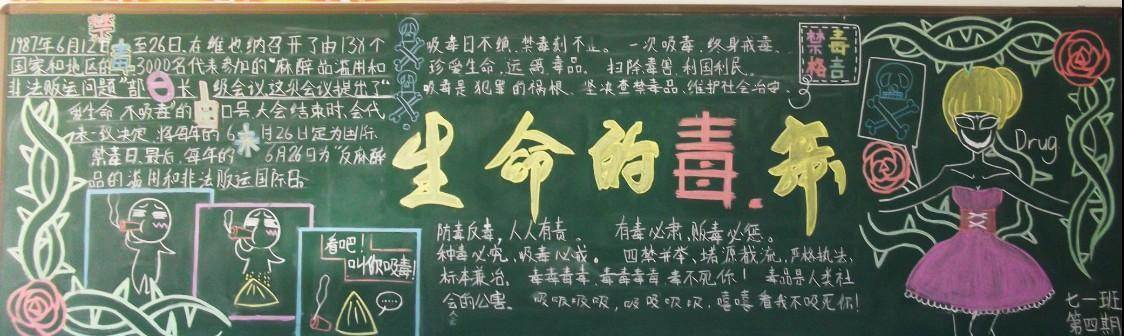 禁毒日的来
1987年6月12日至26日,在维也纳召开了由138个
国家和地区的3000名代表参加的"麻醉品滥用和
非法贩运问题"部长级会议.这次会议提出了"
爱生命,不吸毒"的口号,大会结束时,会代
表一致决定,将每年的6月26日定为国际
禁毒日,最后,每年的6月26日为"反麻醉
品的滥用和非法贩运国际日。
吸毒日不绝,禁毒刻不止。 一次吸毒,终身戒毒.
珍爱生命,远离毒品。 扫除毒害,利国利民.
吸毒是犯罪的祸根. 坚决查禁毒品,维护社会治安.
禁毒
格言
生命的毒.药
Drug
看吧!
叫你吸毒!
防毒反毒,人人有责. 有毒必肃,贩毒必惩。
种毒必究,吸毒必戒。 四禁并举、堵源截流,严格执法,
标本兼治。 毒毒毒毒,毒毒毒毒,毒不死你! 毒品是人类社
会的公害. 吸吸吸吸,吸吸吸吸,嘻嘻看我不吸死你!
七一班
第四期